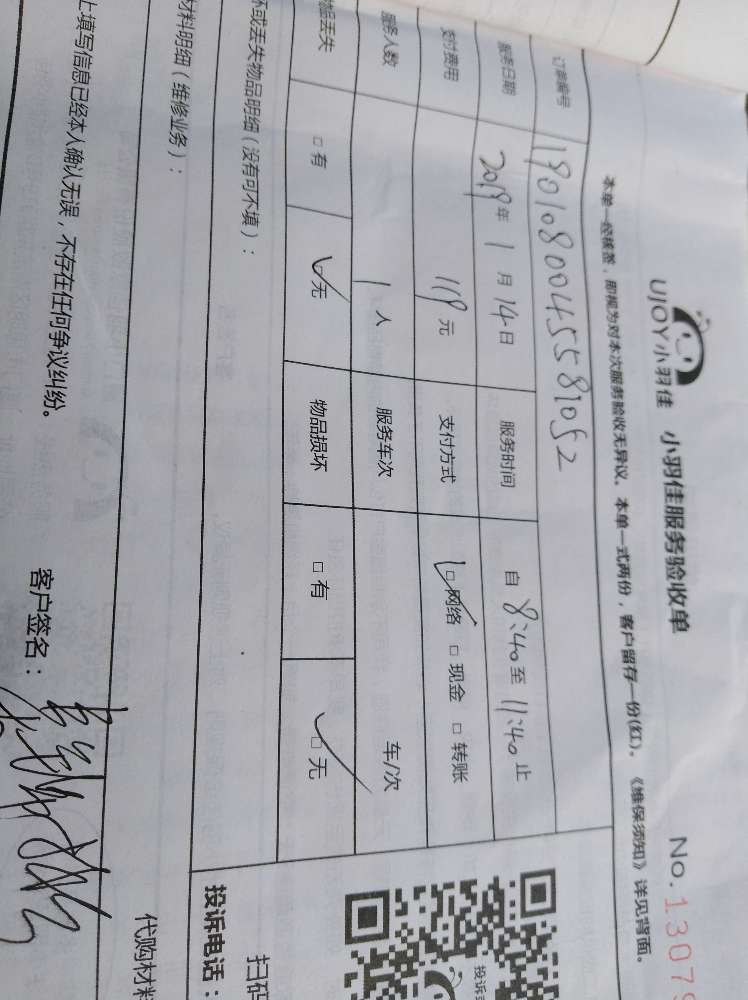 UJOY小羽佳 小羽佳服务验收单
No.1307
本单一经核签，即视为对本次服务验收无异议。本单一式两份，客户留存一份(红)。《维保须知》详见背面。
订单编号 1901080045581052
服务日期 2019年1月14日 服务时间 自8:40至11:40止
支付费用 119元 支付方式 □网络 □现金 □转账
服务人数 1人 服务车次 车/次
物品丢失 □有 □无 物品损坏 □有 □无
坏或丢失物品明细（没有可不填）：
材料明细（维修业务）：
上填写信息已经本人确认无误，不存在任何争议纠纷。 客户签名：
投诉
扫码
投诉电话：
代购材料